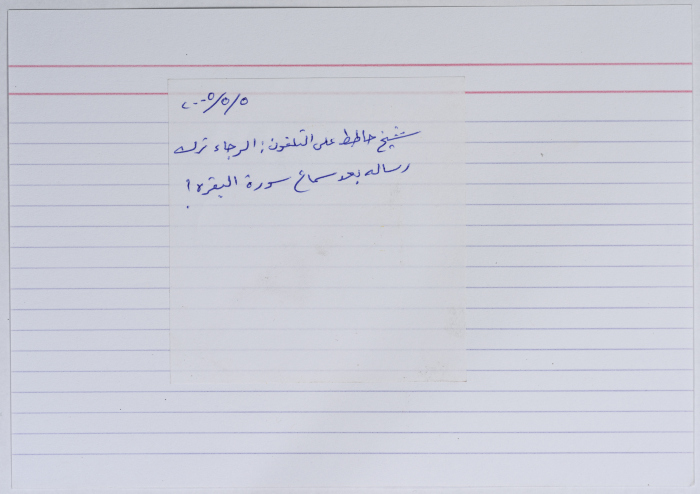 ٢٠٠٥/٥/٥
شيخ حاطط على التلفون: الرجاء ترك
رساله بعد سماع سورة البقره!